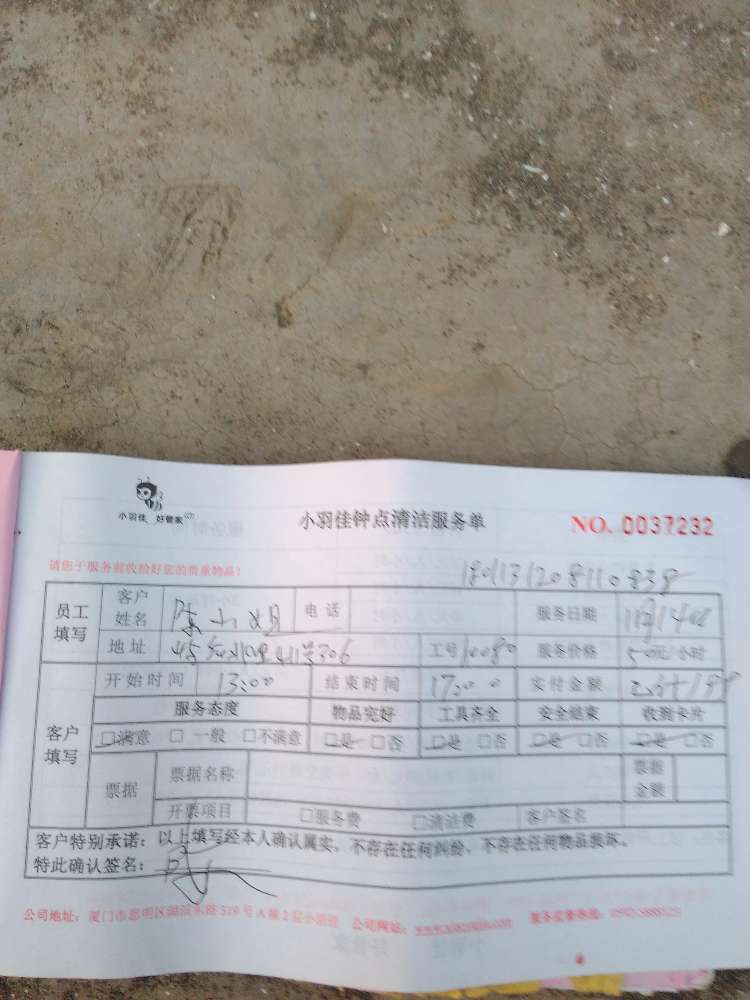 小羽佳 好管家
小羽佳钟点清洁服务单
NO. 0037232
请您于服务前收拾好您的贵重物品!
员工填写 客户姓名 陈小姐 电话 服务日期 11月14日
地址 306 工号 10080 服务价格 50元/小时
客户填写 开始时间 13:00 结束时间 17:00 实付金额
服务态度 物品完好 工具齐全 安全结束 收到卡片
□满意 □一般 □不满意 □是 □否 □是 □否 □是 □否 □是 □否
票据 票据名称 票据金额
开票项目 □服务费 □清洁费 客户签名
客户特别承诺:以上填写经本人确认属实,不存在任何纠纷、不存在任何物品损坏。
特此确认签名:
公司地址:厦门市思明区湖滨东路319号A栋2层小羽佳 公司网站: 服务监督热线: